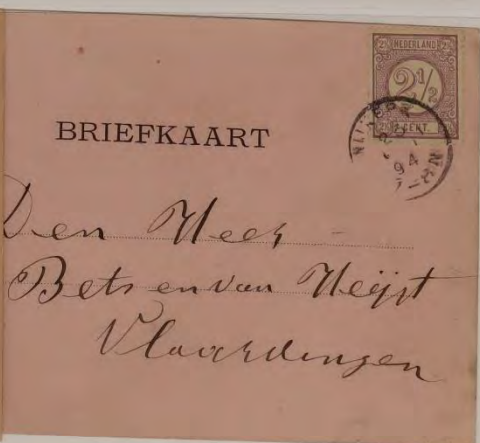 2½ NEDERLAND 2½
2½
CENT.
94
BRIEFKAART
Den Heer
Bets en van Heijst
Vlaardingen